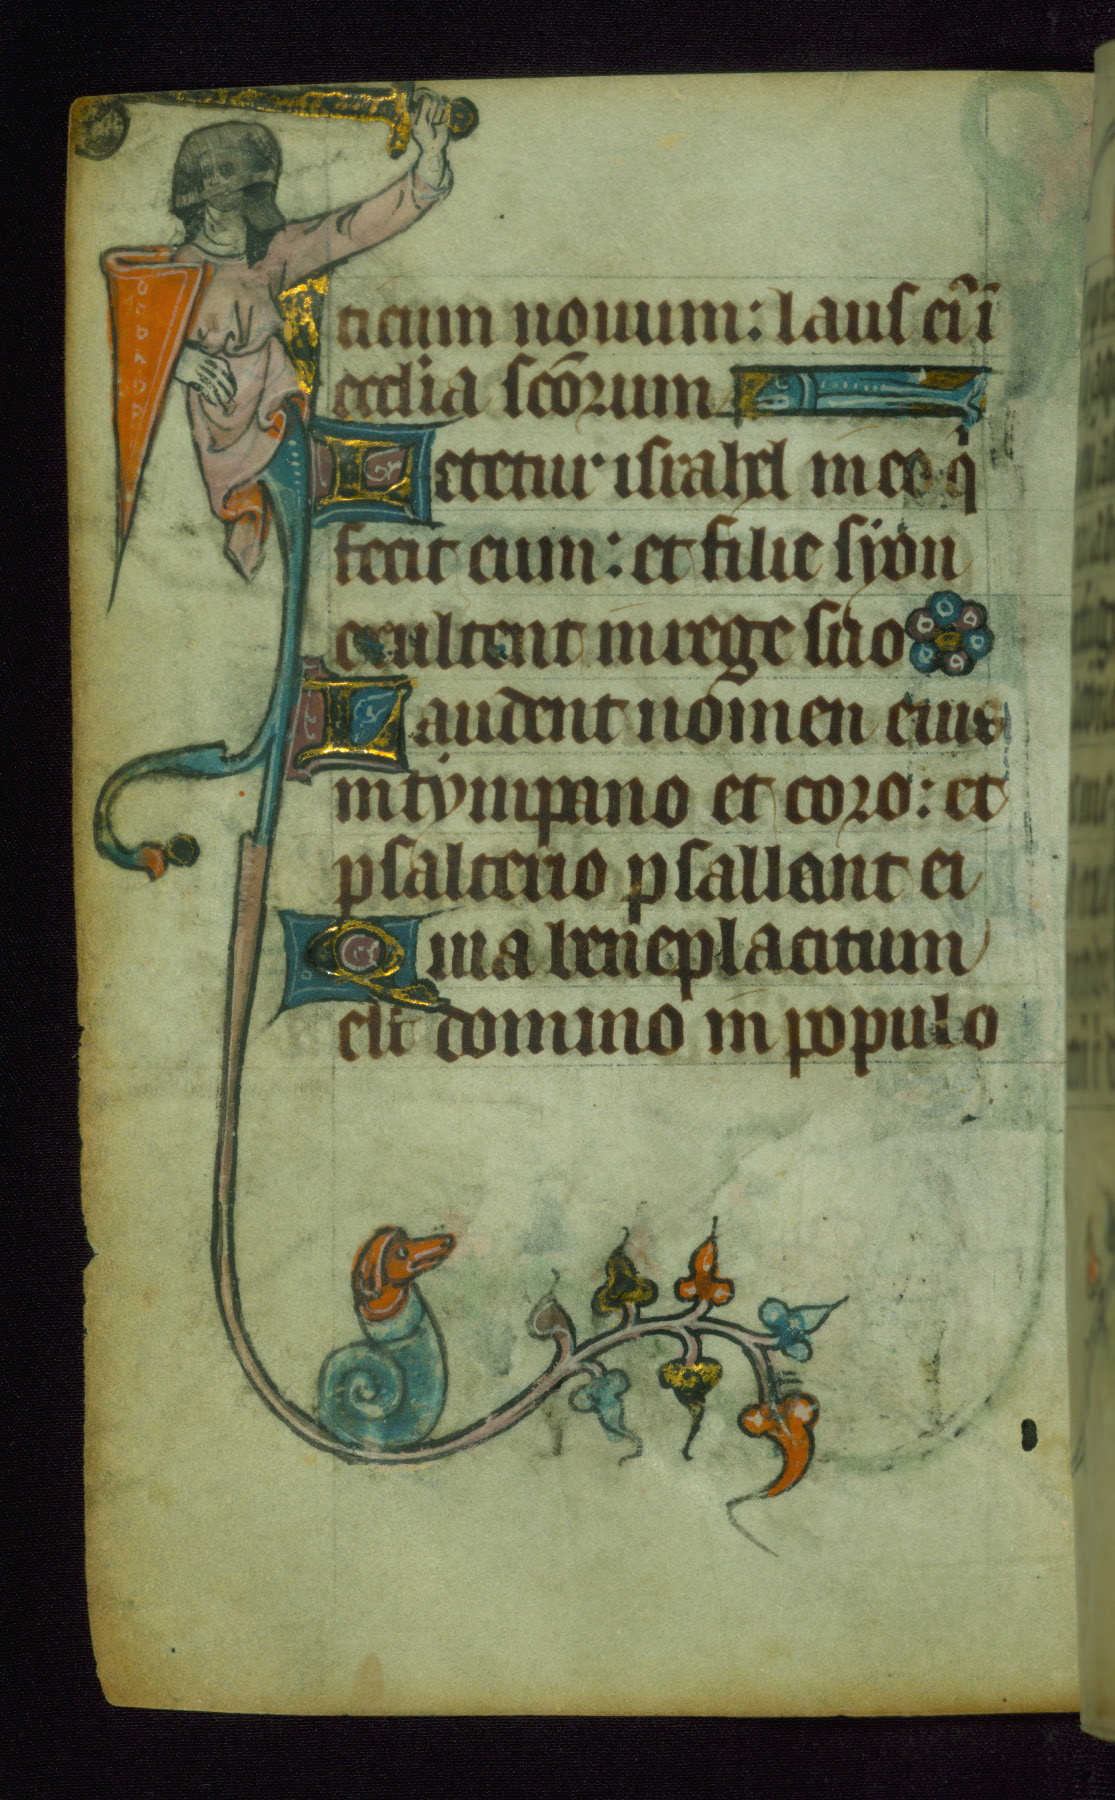 ticum nouum: laus ei᷒ ı̄
ecclīa scōrum
Letetur israhel in eo q̇
fecit eum: et filie syon
exultent in rege suo
Laudent nomen eius
in tympano et coro: et
psalterio psallant ei
Quia beneplacitum
est domino in populo